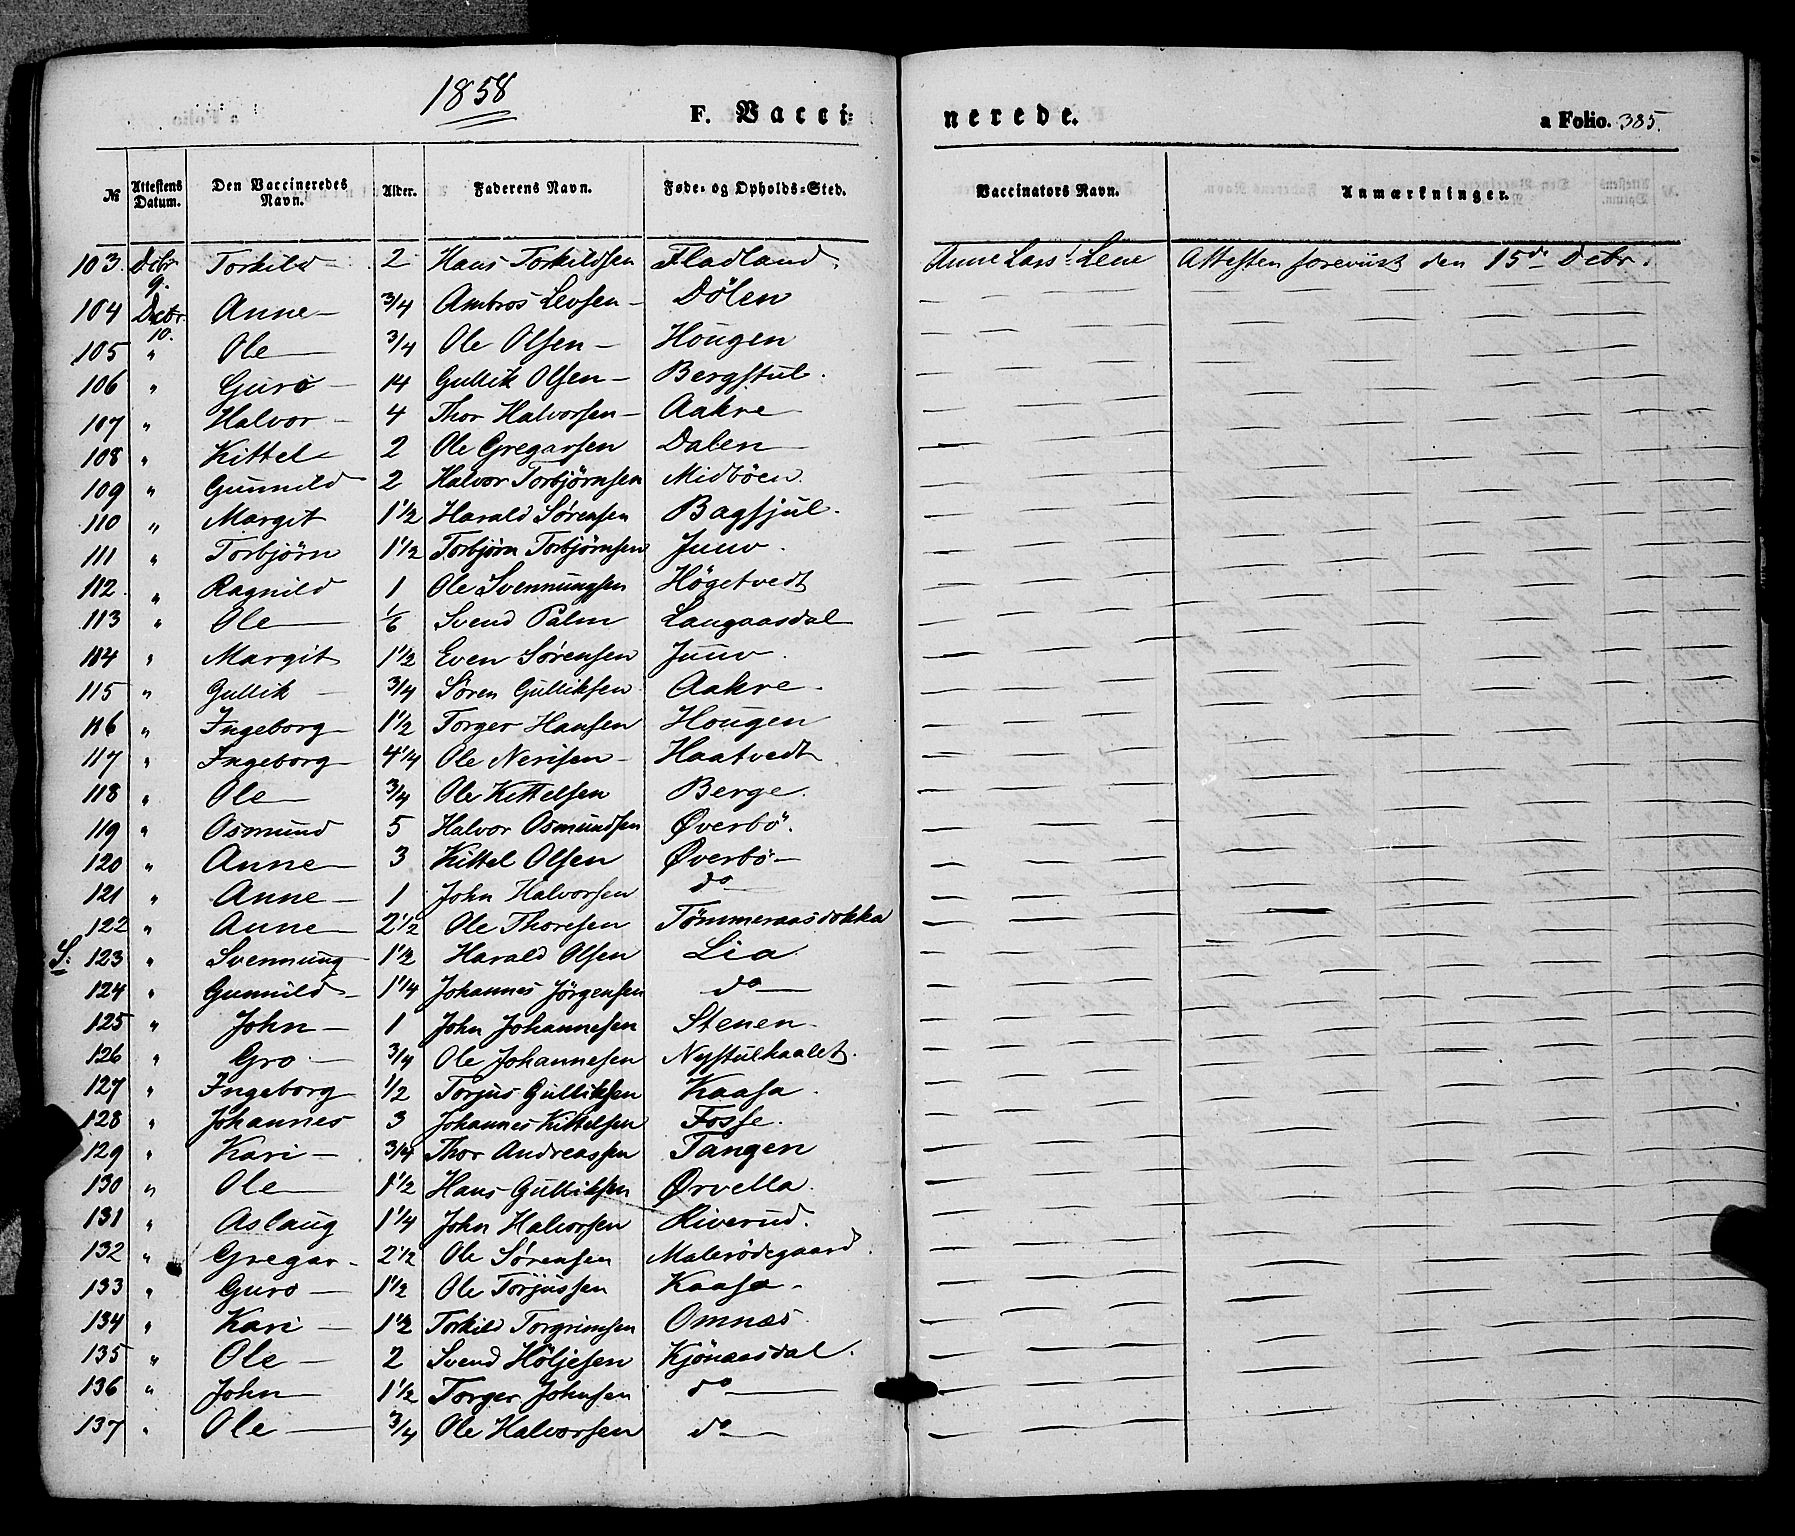 1858
F. Vacci=nerede. a Folio. 385.
№ Attestens Datum. Den Vaccineredes Navn. Alder. Faderens Navn. Føde= og Opholds=Sted. Vaccinators Navn. Anmærkninger.
103. Decbr 9. Torkild 2 Hans Torkildsen Fladland. Anne Lars! Lene Attesten foreviist den 15de Decbr.
104 Decbr. 10. Anne 3/4 Ambros Levsen Dölen
105 " Ole 3/4 Ole Olsen Hougen
106 " Guro 14 Gullik Olsen Bergstul.
107 " Halvor 4 Thor Halvorsen Aakre
108 " Kittel 2 Ole Gregarsen Dalen
109 " Gunnild 2 Halvor Torbjørnsen Midböen.
110 " Margit 1 1/2 Harald Sørensen Bagsjul.
111 " Torbjørn 1 1/2 Torbjørn Torbjørnsen Juuv.
112. " Ragnild 1 Ole Svennungsen Høgetvedt
113 " Ole 1/6 Svend Palm Langaasdal
114 " Margit 1 1/2 Even Sørensen Juuv.
115 " Gullik 3/4 Søren Gulliksen Aakre.
116 " Ingeborg 1 1/2 Torger Hansen Hougen
117 " Ingeborg 4 1/4 Ole Nerisen Haatvedt
118 " Ole 3/4 Ole Kittelsen Berge.
119 " Osmund 5 Halvor Osmundsen Øverbö.
120 " Anne 3 Kittel Olsen Øverbö
121 " Anne 1 John Halvorsen do
122 " Anne 2 1/2 Ole Thoresen Tömmeraasdokka
S. 123 " Svennung 1 1/2 Harald Olsen Lia
124 " Gunnild 1 1/4 Johannes Jörgensen do
125 " John 1 John Johannesen Stenen
126 " Gro 3/4 Ole Johannesen Nystulhaalet.
127 " Ingeborg 1/2 Torjus Gulliksen Kaasa.
128 " Johannes 3 Johannes Kittelsen Fosse.
129 " Kari 3/4 Thor Andreassen Tangen
130 " Ole 1 1/2 Hans Gulliksen Ørvella.
131 " Aslaug 1 1/4 John Halvorsen Riverud.
132 " Gregar 2 1/2 Ole Sørensen Malerödegaard.
133 " Guro 1 1/2 Ole Torjussen Kaasa
134 " Kari 1 1/2 Torkild Torgrimsen Omnæs.
135 " Ole 2 Svend Höljesen Kjönaasdal.
136 " John 1 1/2 Torger Johnsen do
137 " Ole 3/4 Ole Halvorsen do